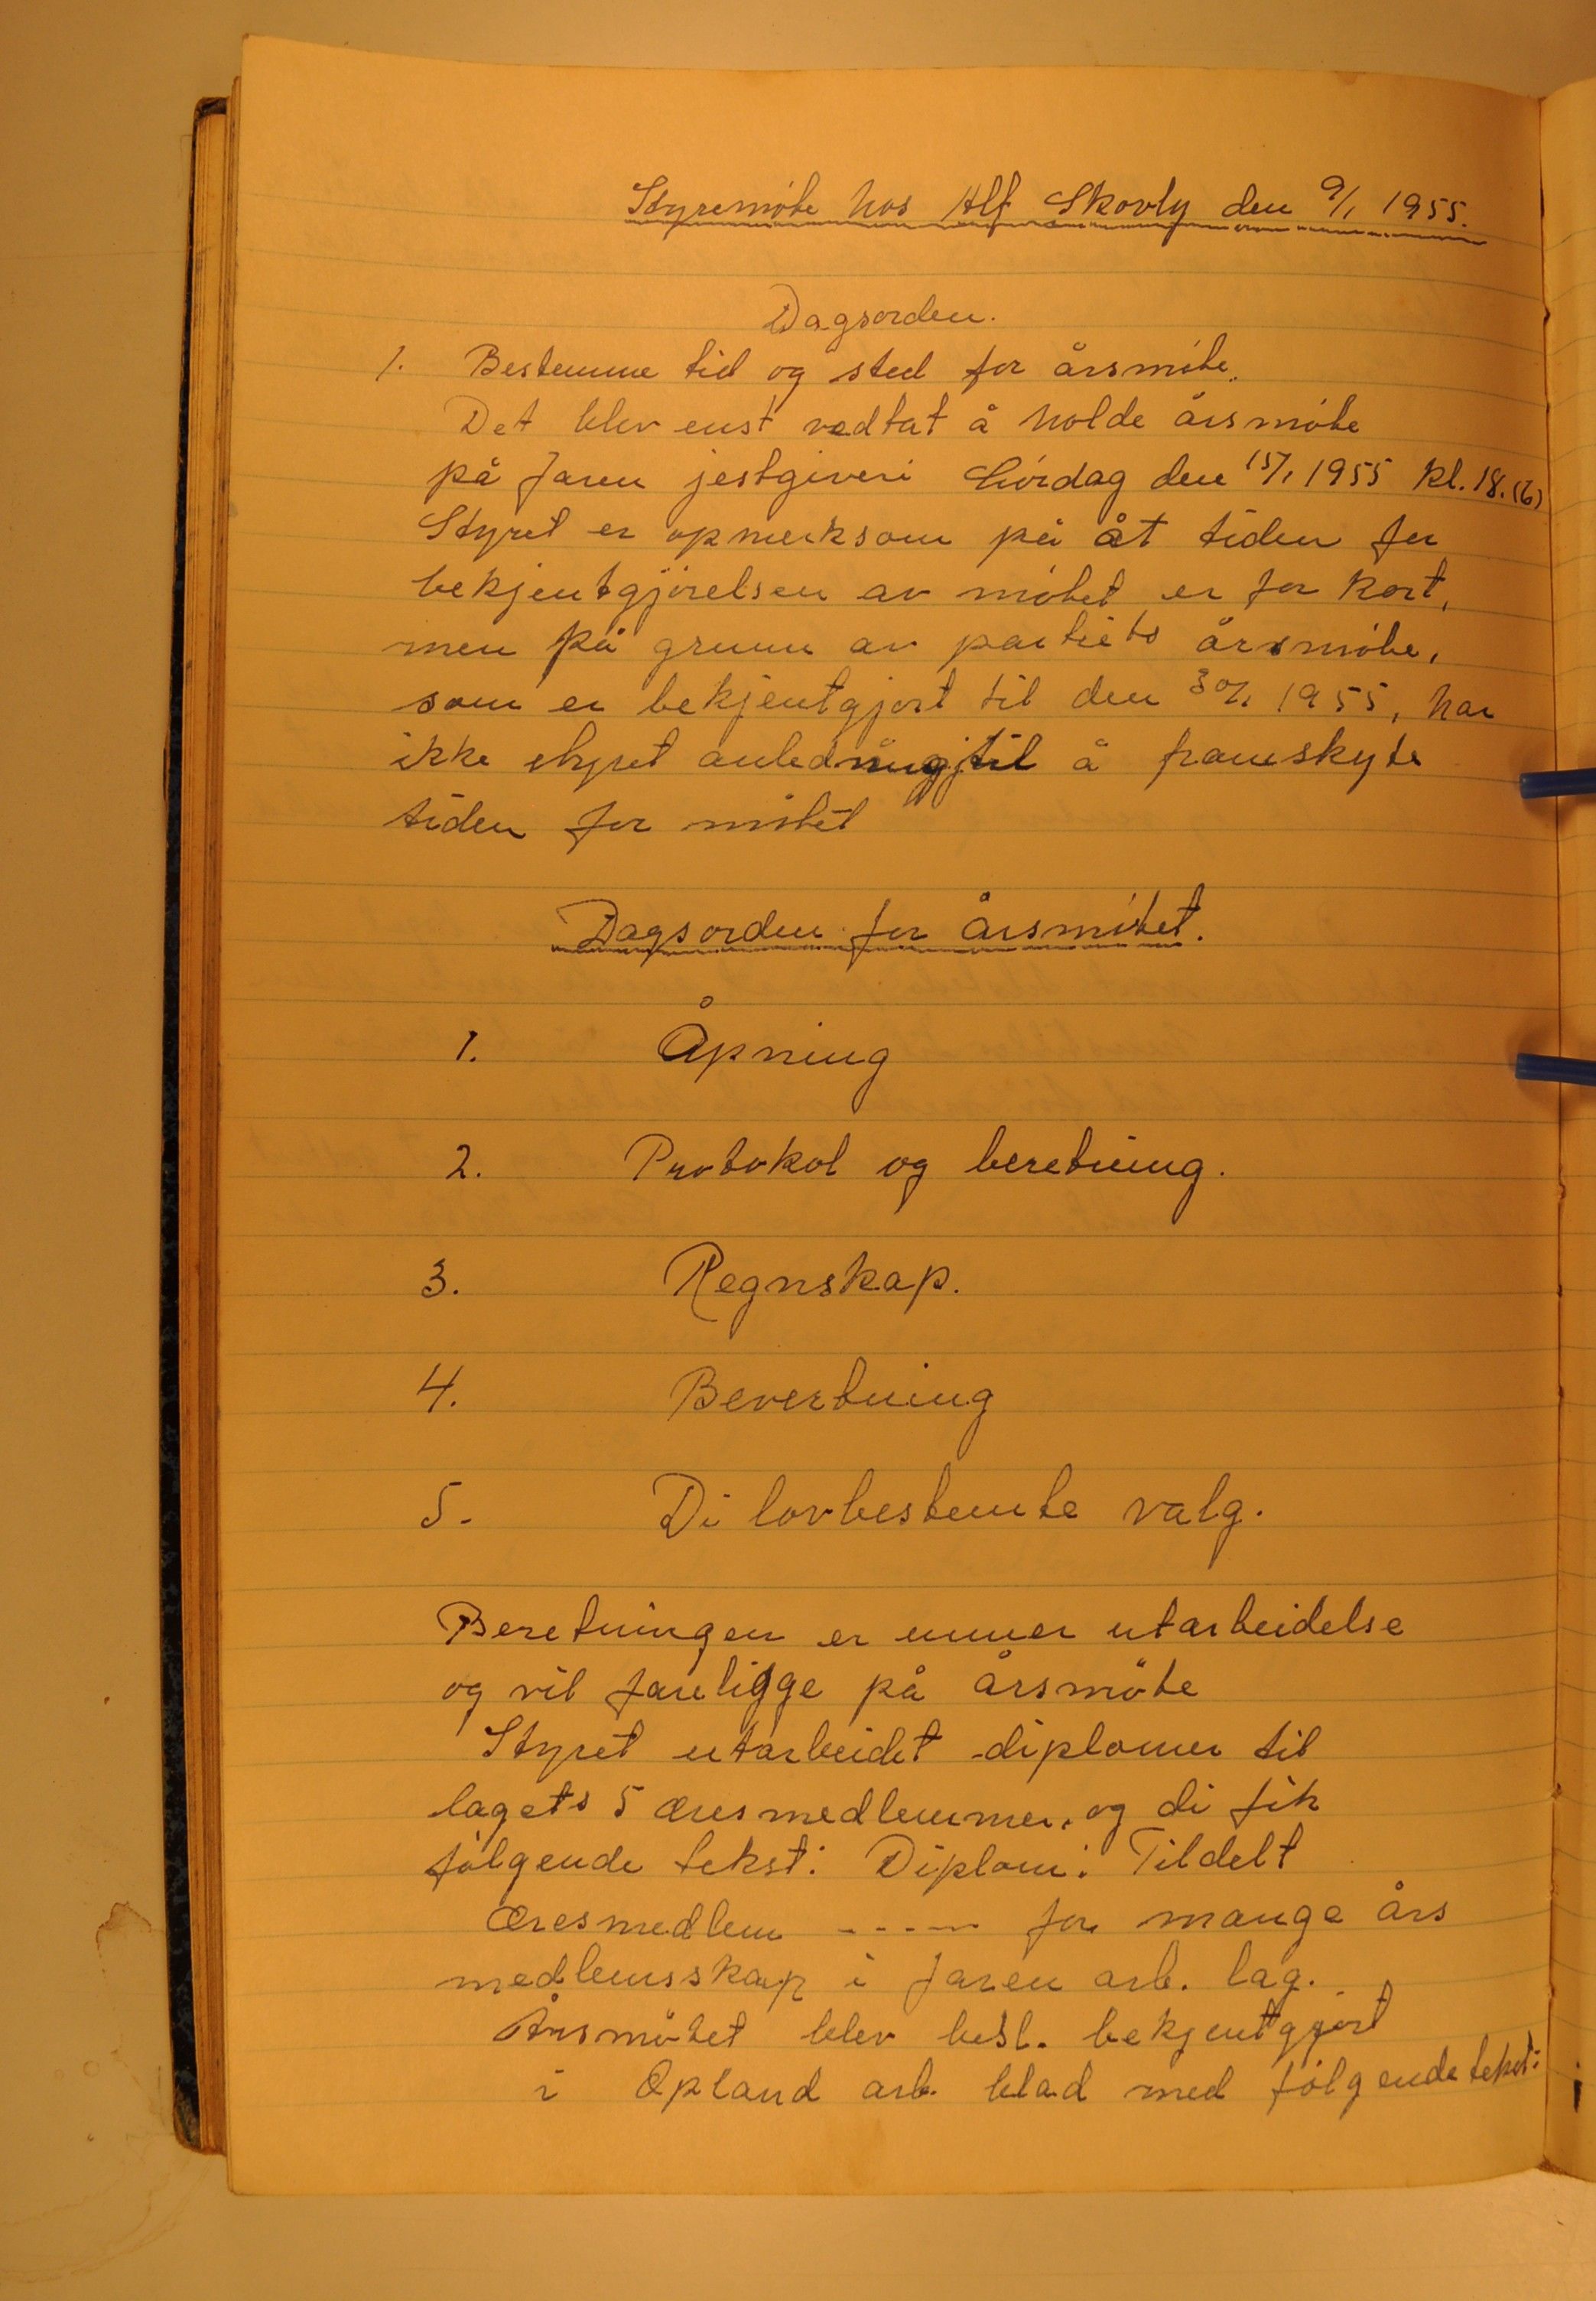 Styremöte hos Alf Skovly den 9/1 1955.
Dagsorden.
1. Bestemme tid og sted for årsmöte.
Det blev enst vedtat å holde årsmöte
på Jaren jestgiveri Lördag den 15/1 1955 kl. 18. (6)
Styret er opmerksom på åt tiden for
bekjentgjörelsen av mötet er for kort,
men på grunn av partiets årsmöte,
som er bekjentgjort til den 30/1 1955, har
ikke styret anledning til å framskyte
tiden for mötet
Dagsorden for Årsmötet.
1. Åpning
2. Protokol og beretning.
3. Regnskap.
4. Bevertning
5. Di lovbestemte valg.
Beretningen er unner utarbeidelse
og vil foreligge på årsmöte
Styret utarbeidet diplomer til
lagets 5 æresmedlemmer, og di fik
fölgende tekst: Diplom: Tildelt
Æresmedlem ----- for mange års
medlemsskap i Jaren arb. lag.
Årsmötet blev besl. bekjentgjort
i Opland arb. blad med fölgende tekst: